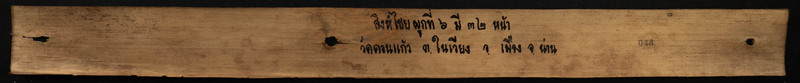 สิงห์ไชย ผูกที่ ๖ มี ๓๒ หน้า
วัดดอนแก้ว ต.ในเวียง อ. เมือง จ. น่าน